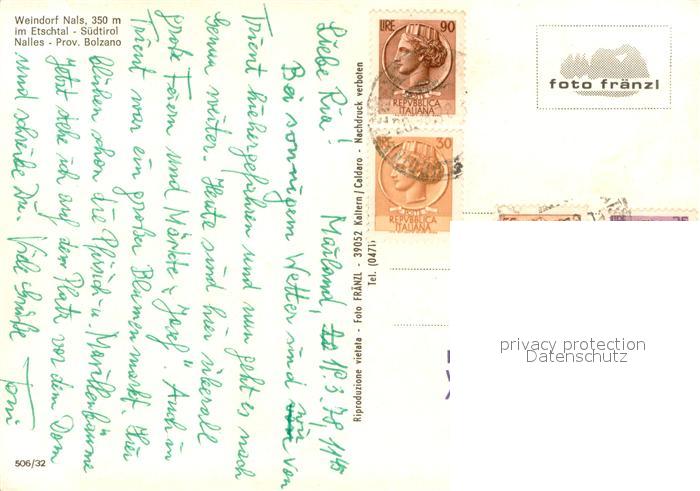 Weindorf Nals, 350 m
im Etschtal - Südtirol
Nalles - Prov. Bolzano
Mailand, 19.3.78 1145
Liebe Ria!
Bei sonnigem Wetter sind wir von
Trient hierhergefahren und nun geht es nach
Genua weiter. Heute sind hier überall
große Feiern und Märkte "Josef". Auch in
Trient war ein großer Blumenmarkt. Hier
blühen schon die Pfirsich- u. Marillenbäume
Jetzt stehe ich auf dem Platz vor dem Dom
und schreibe Dir. Viele Grüße Toni
506/32
Riproduzione vietata - Foto FRÄNZL - 39052 Kaltern/Caldaro - Nachdruck verboten
Tel. (0471)
LIRE 90
REPVBBLICA
ITALIANA
30
POSTE
REPVBBLICA
ITALIANA
foto fränzl
privacy protection
Datenschutz